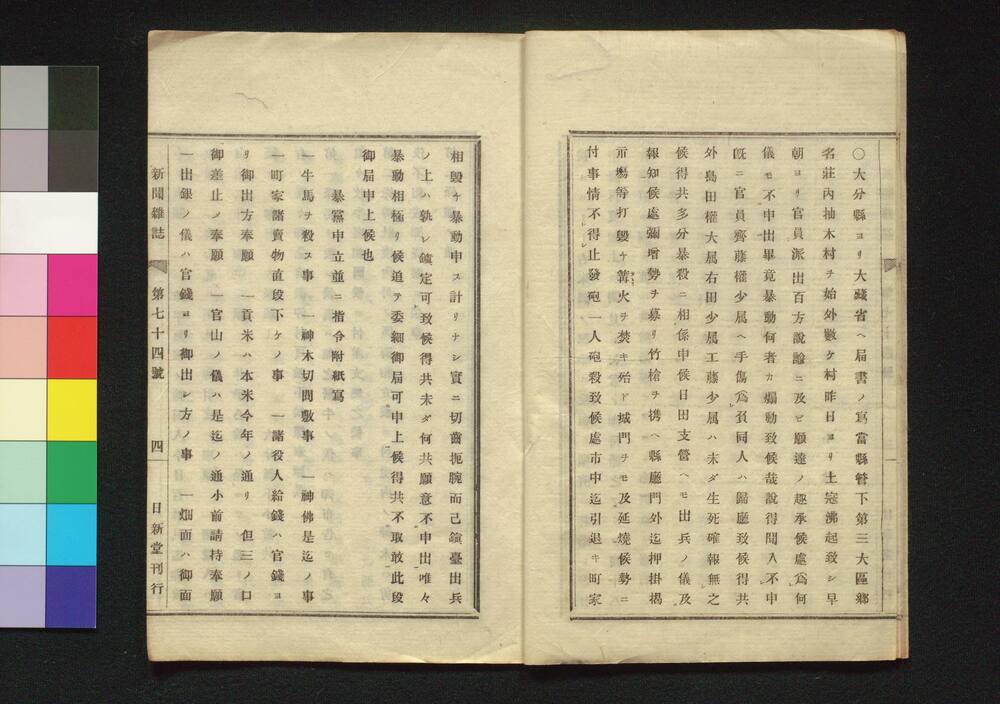 〇大分縣ヨリ大藏省ヘ届書ノ寫當縣管下第三大區鄕
名莊內抽木村ヲ始外數ケ村昨日ヨリ土寇沸起致シ早
朝ヨリ官員派出百方說諭ニ及ビ願達ノ趣承候處爲何
儀モ不申出畢竟暴動何者カ煽動致候哉說得聞入不申
旣ニ官員齊藤權少属ヘ手傷爲負同人ハ歸廳致候得共
外島田權大属右田少属工藤少属ハ未ダ生死確報無之
候得共多分暴殺ニ相係申候日田支管ヘモ出兵ノ儀及
報知候處彌增勢ヲ募リ竹槍ヲ携ヘ縣廳門外迄押掛揭
示塲等打毀ケ篝火ヲ焚キ殆ド城門ヲモ及延燒候勢ニ
付事情不得止發砲一人砲殺致候處市中迄引退キ町家
相毀ケ暴動申ス計リナシ實ニ切齒扼腕而已鎭臺出兵
ノ上ハ孰レ鎭定可致候得共未ダ何共願意不申出唯々
暴動相極リ候追テ委細御届可申上候得共不取敢此段
御届申上候也
暴黨申立並ニ指令附紙寫
一牛馬ヲ殺ス事　一神木切間敷事　一神佛是迄ノ事
一町家諸賣物直段下ケノ事　一諸役人給錢ハ官錢ヨ
リ御出方奉願　一貢米ハ本米今年ノ通リ　但三ノ口
御差止ノ奉願　一官山ノ儀ハ是迄ノ通小前請持奉願
一出銀ノ儀ハ官錢ヨリ御出シ方ノ事　一畑面ハ御面
新聞雜誌　第七十四號　四　日新堂刊行